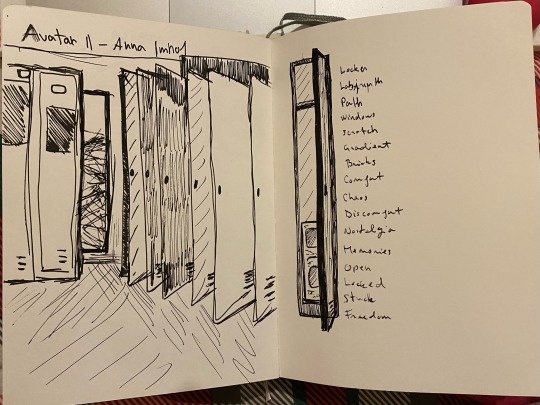 Avatar II - Anna Imhof
Locker
Labyrinth
Path
Windows
Scratch
Gradient
Bricks
Comfort
Chaos
Discomfort
Nostalgia
Memories
Open
Locked
Stuck
Freedom